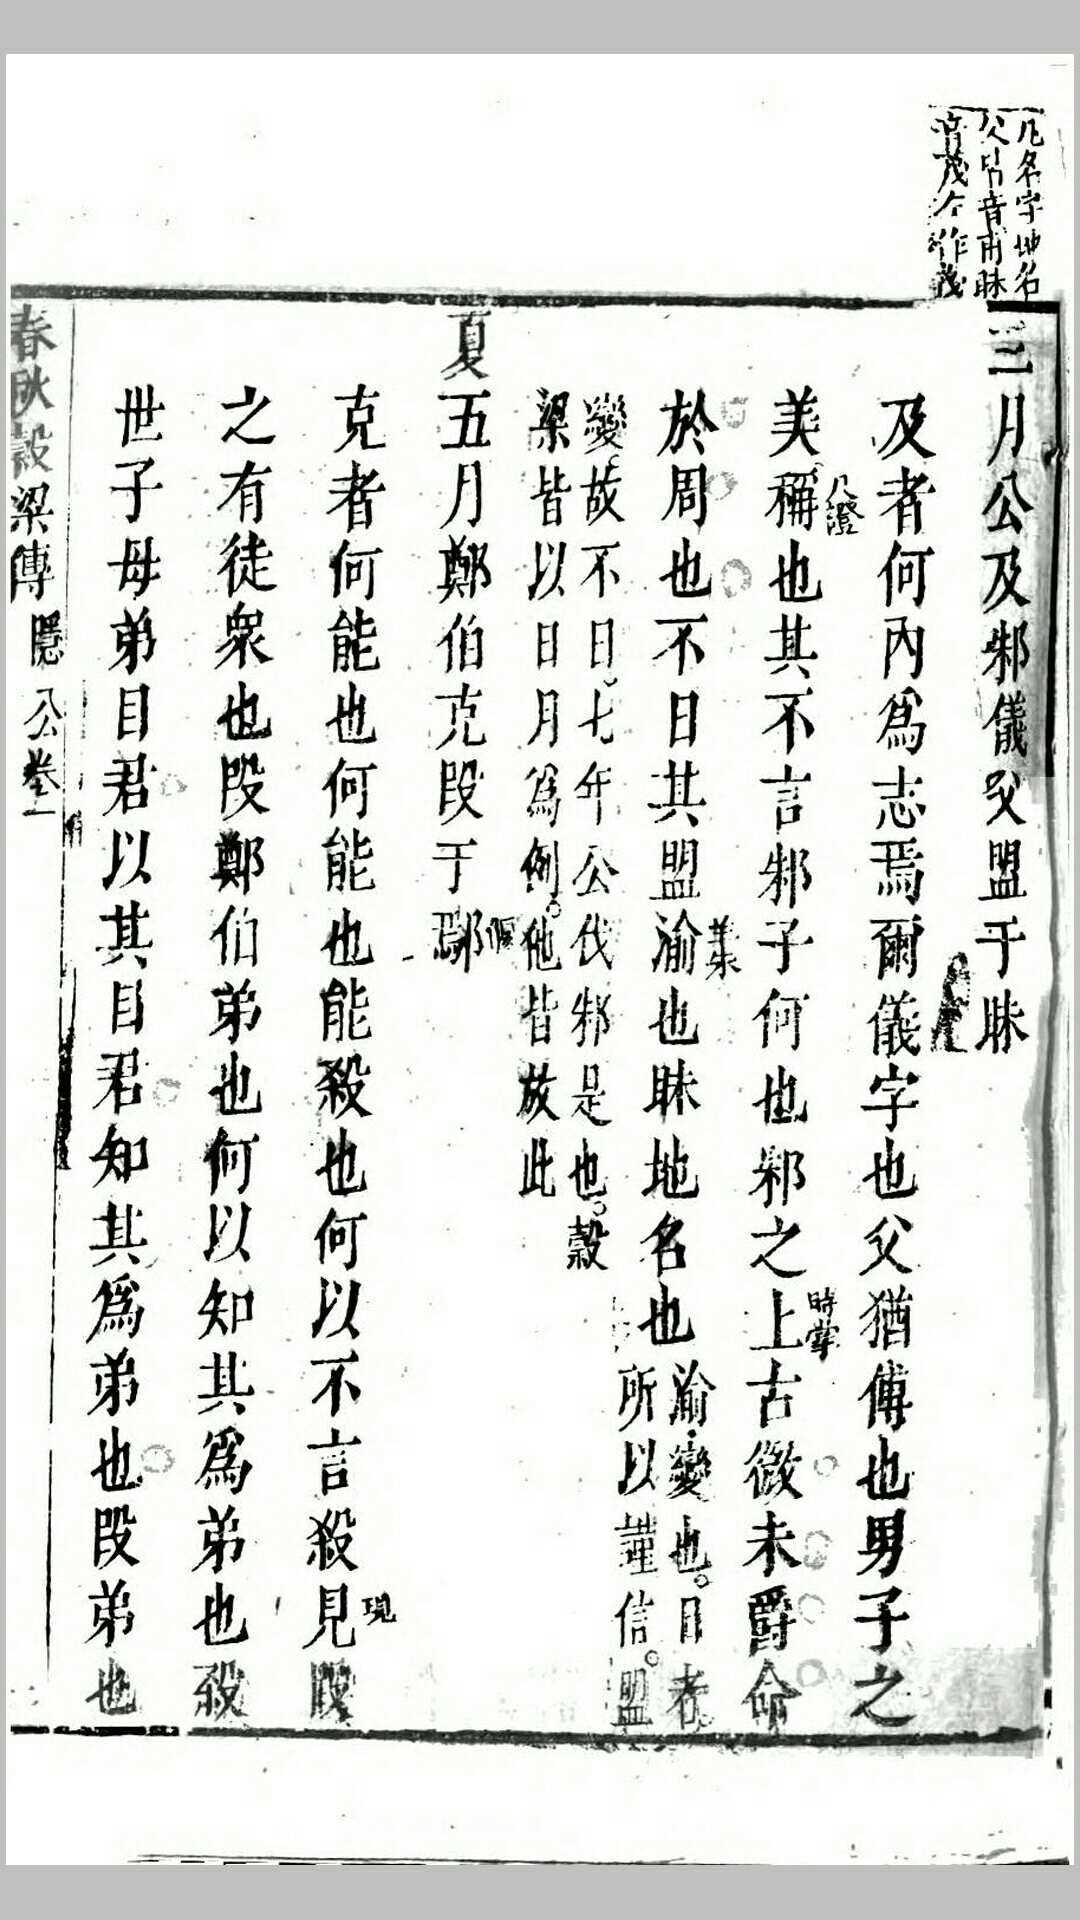 凡名字地名
父皆音甫眛
音茂左作蔑
三月公及邾儀父盟于眛
及者何內爲志焉爾儀字也父猶傅也男子之
美稱也其不言邾子何也邾之上古微未爵命
尺證
時掌
於周也不日其盟渝也眛地名也
羊朱
渝變也日者
所以謹信盟
變故不日七年公伐邾是也穀
梁皆以日月爲例他皆放此
夏五月鄭伯克段于鄢
偃
克者何能也何能也能殺也何以不言殺見段
現
之有徒衆也段鄭伯弟也何以知其爲弟也殺
世子母弟目君以其目君知其爲弟也段弟也
春秋穀梁傳 隱公卷一